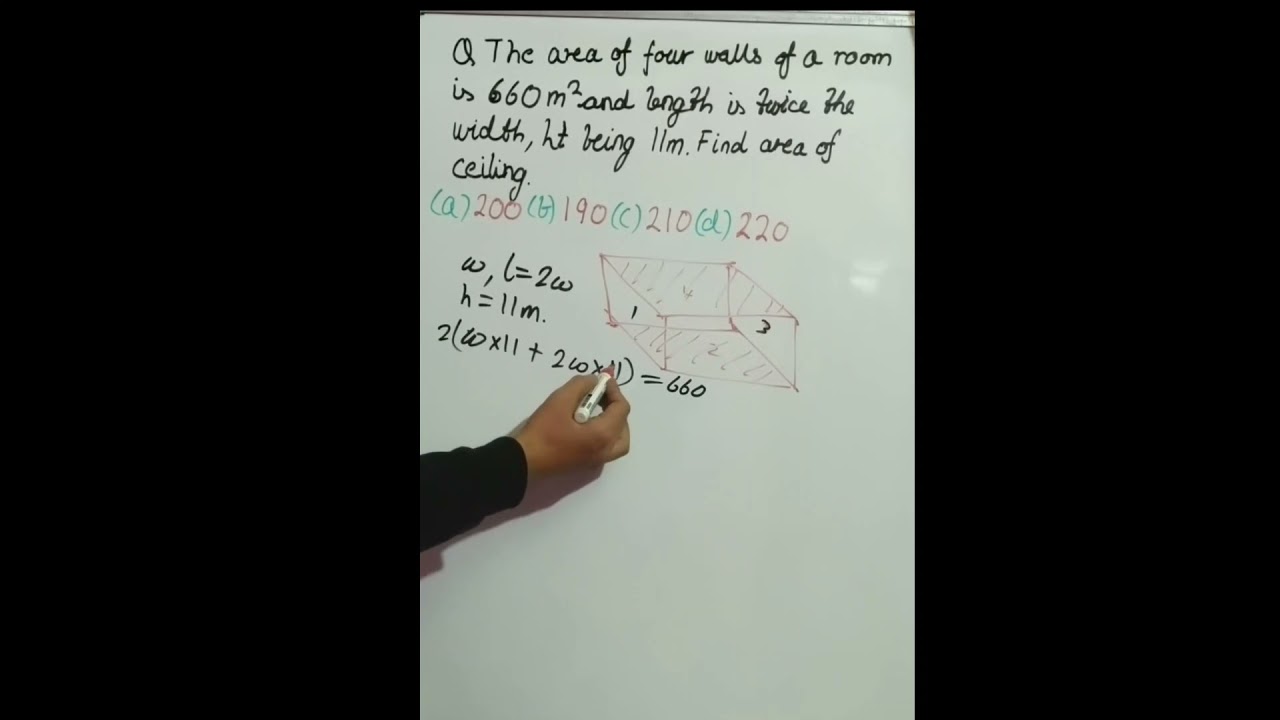 Q The area of four walls of a room
is 660m² and length is twice the
width, ht being 11m. Find area of
ceiling.
(a) 200 (b) 190 (c) 210 (d) 220
w, l=2w
h=11m.
2(w×11 + 2w×11) = 660
4
1
3
2